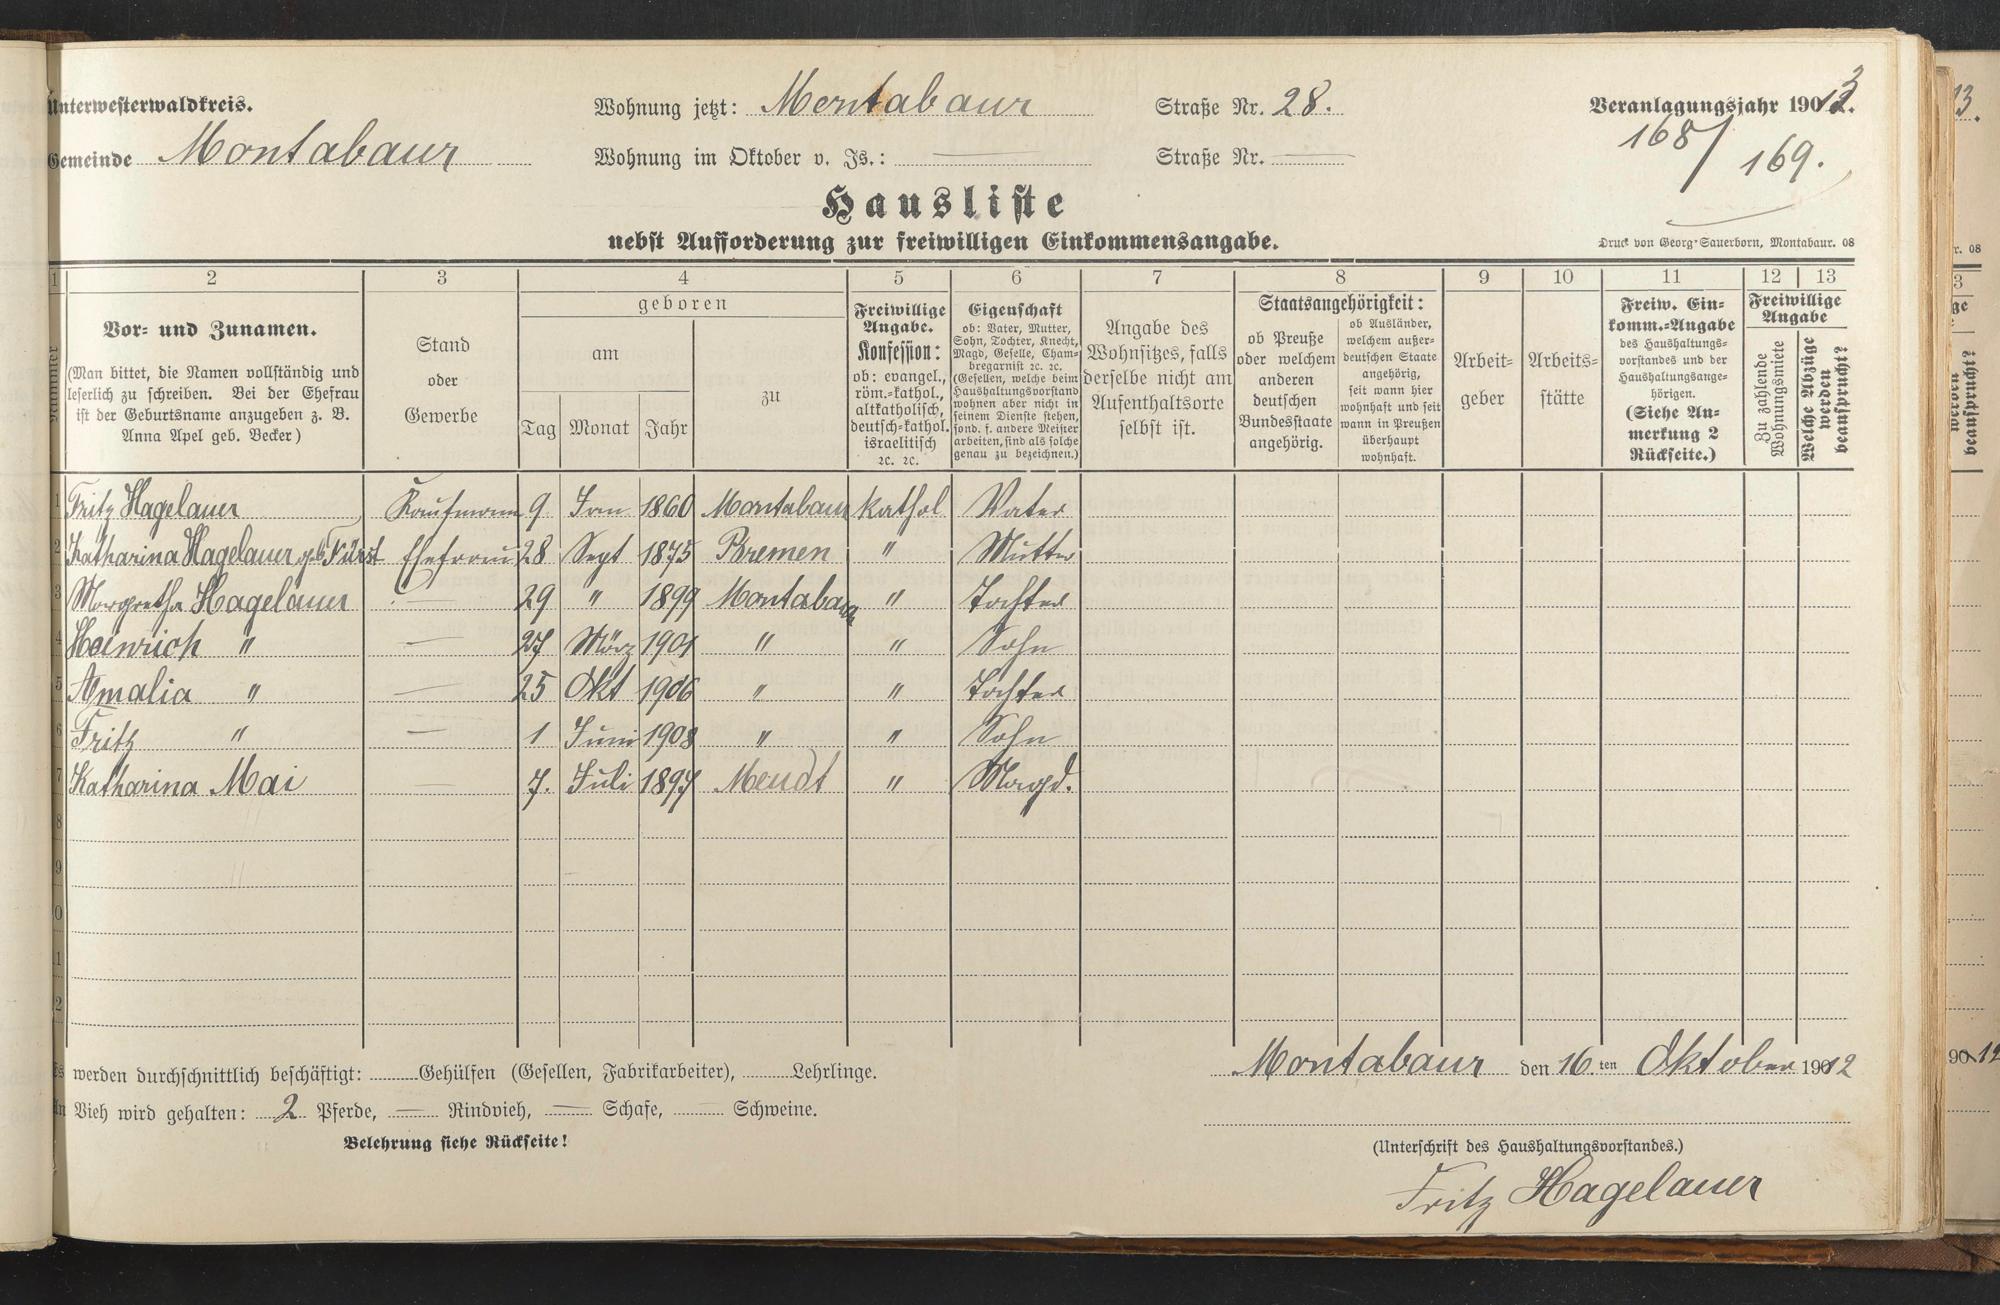 Unterwesterwaldkreis.
Gemeinde Montabaur
Wohnung jetzt: Montabaur Straße Nr. 28.
Wohnung im Oktober v. Js.: — Straße Nr. —
Veranlagungsjahr 1913.
168/169.
Hausliste
nebst Aufforderung zur freiwilligen Einkommensangabe.
Druck von Georg Sauerborn, Montabaur. 08
1 2 3 4 5 6 7 8 9 10 11 12 13
Nummer
Vor- und Zunamen.
(Man bittet, die Namen vollständig und
leserlich zu schreiben. Bei der Ehefrau
ist der Geburtsname anzugeben z. B.
Anna Apel geb. Becker)
Stand
oder
Gewerbe
geboren
am
Tag Monat Jahr
zu
Freiwillige
Angabe.
Konfession:
ob: evangel.,
röm.-kathol.,
altkatholisch,
deutsch-kathol.
israelitisch
ꝛc. ꝛc.
Eigenschaft
ob: Vater, Mutter,
Sohn, Tochter, Knecht,
Magd, Geselle, Cham-
bregarnist ꝛc. ꝛc.
(Gesellen, welche beim
Haushaltungsvorstand
wohnen aber nicht in
seinem Dienste stehen,
sond. f. andere Meister
arbeiten, sind als solche
genau zu bezeichnen.)
Angabe des
Wohnsitzes, falls
derselbe nicht am
Aufenthaltsorte
selbst ist.
Staatsangehörigkeit:
ob Preuße
oder welchem
anderen
deutschen
Bundesstaate
angehörig.
ob Ausländer,
welchem außer-
deutschen Staate
angehörig,
seit wann hier
wohnhaft und seit
wann in Preußen
überhaupt
wohnhaft.
Arbeit-
geber
Arbeits-
stätte
Freiw. Ein-
komm.-Angabe
des Haushaltungs-
vorstandes und der
Haushaltungsange-
hörigen.
(Siehe An-
merkung 2
Rückseite.)
Freiwillige
Angabe
Zu zahlende
Wohnungsmiete
Welche Abzüge
werden
beansprucht?
1 Fritz Hagelauer Kaufmann 9. Jan 1860 Montabaur kathol Vater
2 Katharina Hagelauer geb. Fürst Ehefrau 28 Sept 1875 Bremen " Mutter
3 Margretha Hagelauer — 29 " 1899 Montabaur " Tochter
4 Heinrich " — 27 März 1901 " " Sohn
5 Amalia " — 25 Okt 1906 " " Tochter
6 Fritz " — 1 Juni 1908 " " Sohn
7 Katharina Mai — 7. Juli 1897 Meudt " Magd.
8
9
0
1
2
werden durchschnittlich beschäftigt: Gehülfen (Gesellen, Fabrikarbeiter), Lehrlinge.
Vieh wird gehalten: 2 Pferde, — Rindvieh, — Schafe, — Schweine.
Belehrung siehe Rückseite!
Montabaur den 16.ten Oktober 1912
(Unterschrift des Haushaltungsvorstandes.)
Fritz Hagelauer